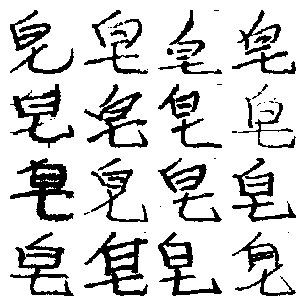 皂皂皂皂
皂皂皂皂
皂皂皂皂
皂皂皂皂